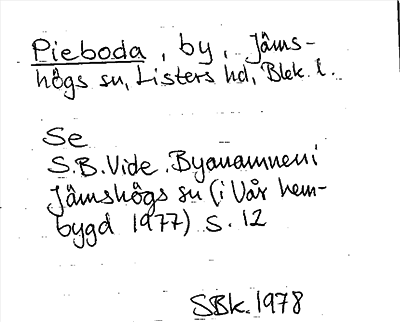 Pieboda, by, Jäms-
högs sn, Listers hd, Blek. l.
Se
S.B. Vide. Byanamnen i
Jämshögs sn (i Vår hem-
bygd 1977) s. 12
SBk. 1978